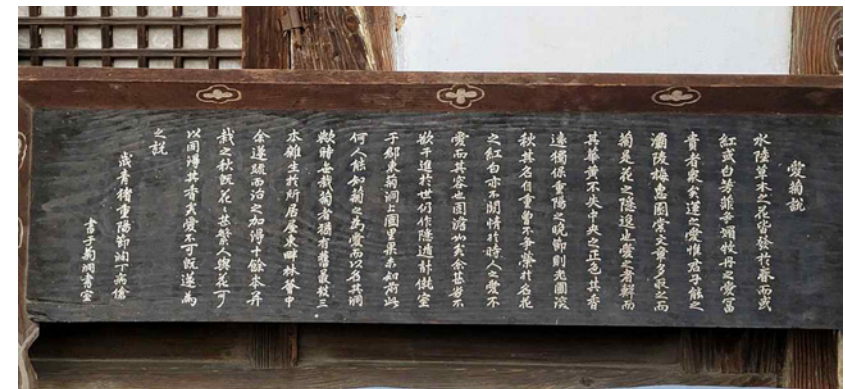 愛菊說
水陸草木之花皆發於春而或
紅或白芳菲爭媚牡丹之愛富
貴者衆矣蓮之愛惟君子能之
灞陵梅惠園棠文章多取之而
菊是花之隱逸也愛之者鮮而
其華黃不失中央之正色其香
遠獨保重陽之晩節則光園淡
秋其名自重曽不爭榮於名花
之紅白亦不関情於時人之愛不
愛而其容也園澹如矣余甚若不
歎于進於世仍作隱遁計僦室
于鄕東菊洞之園里果如前此
何人能如菊之為愛而以名其洞
歟時無栽菊者猶有舊叢數三
本雜生於所居屋東畔林荟中
余遂疏而治之加得十餘本幷
栽之秋旣花之甚繁人與花可
以同得其香矣愛不可旣遂為
之説
歳青猪重陽節洞丁病傖
書于菊洞書室